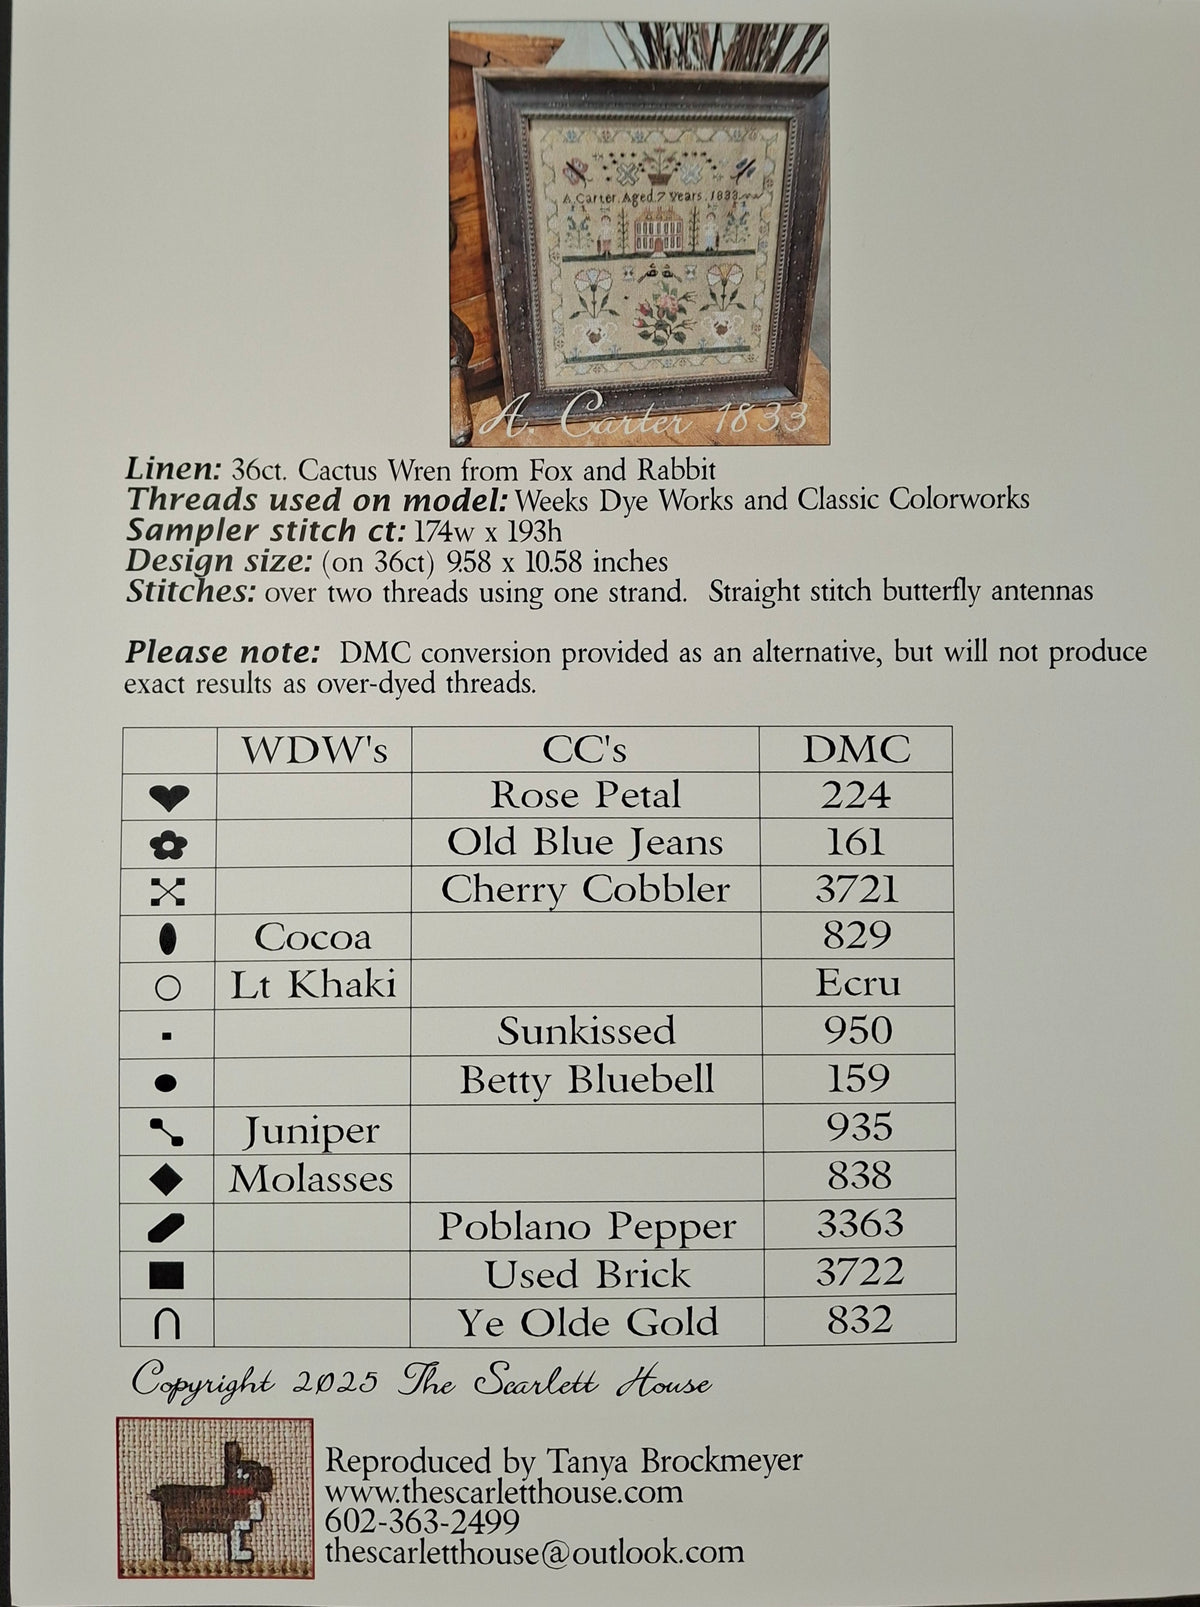 A. Carter. Aged. 7 Years. 1833
A. Carter 1833
Linen: 36ct. Cactus Wren from Fox and Rabbit
Threads used on model: Weeks Dye Works and Classic Colorworks
Sampler stitch ct: 174w x 193h
Design size: (on 36ct) 9.58 x 10.58 inches
Stitches: over two threads using one strand. Straight stitch butterfly antennas
Please note: DMC conversion provided as an alternative, but will not produce
exact results as over-dyed threads.
WDW's CC's DMC
Rose Petal 224
Old Blue Jeans 161
Cherry Cobbler 3721
Cocoa 829
Lt Khaki Ecru
Sunkissed 950
Betty Bluebell 159
Juniper 935
Molasses 838
Poblano Pepper 3363
Used Brick 3722
Ye Olde Gold 832
Copyright 2025 The Scarlett House
Reproduced by Tanya Brockmeyer
www.thescarletthouse.com
602-363-2499
thescarletthouse@outlook.com